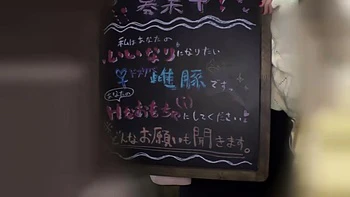 募集中!
私はあなたの
いいなりになりたい
雌豚です。
あなたの
おもちゃにしてください
どんなお願いも聞きます。